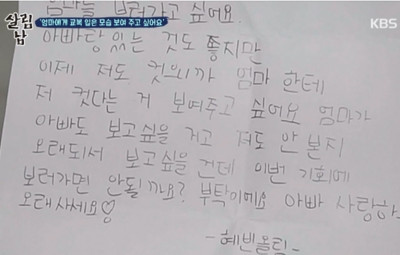 살림남
'엄마에게 교복 입은 모습 보여 주고 싶어요'
KBS
보러가고 싶어요.
아빠랑 있는 것도 좋지만
이제 저도 컷으니까 엄마 한테
저 컷다는 거 보여주고 싶어요 엄마가
아빠도 보고싶을 거고 저도 안 본지
오래되서 보고싶을 건데 이번 기회에
보러가면 안될까요? 부탁이에요 아빠 사랑하
오래사세요♡
-혜빈올림-